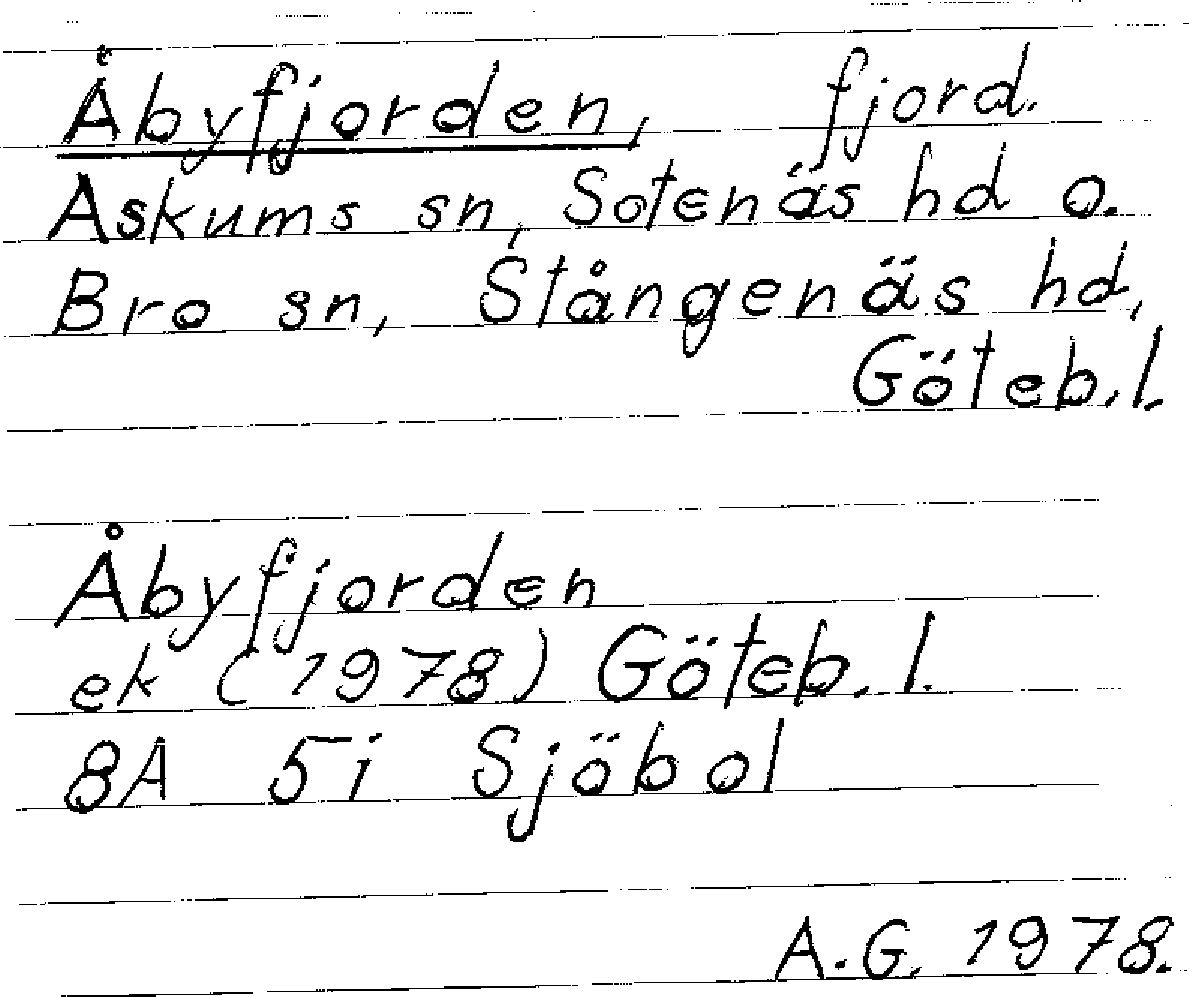 Åbyfjorden, fjord.
Askums sn, Sotenäs hd o.
Bro sn, Stångenäs hd,
Göteb.l.
Åbyfjorden
ek (1978) Göteb.l.
8A 5i Sjöbol
A.G. 1978.